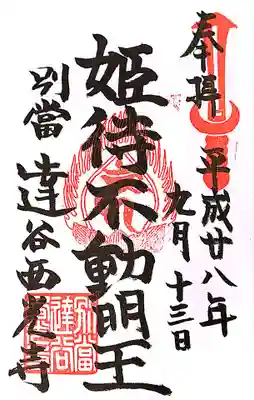 奉拝
平成廿八年
九月十三日
姫待不動明王
別當達谷西光寺
別當
達谷